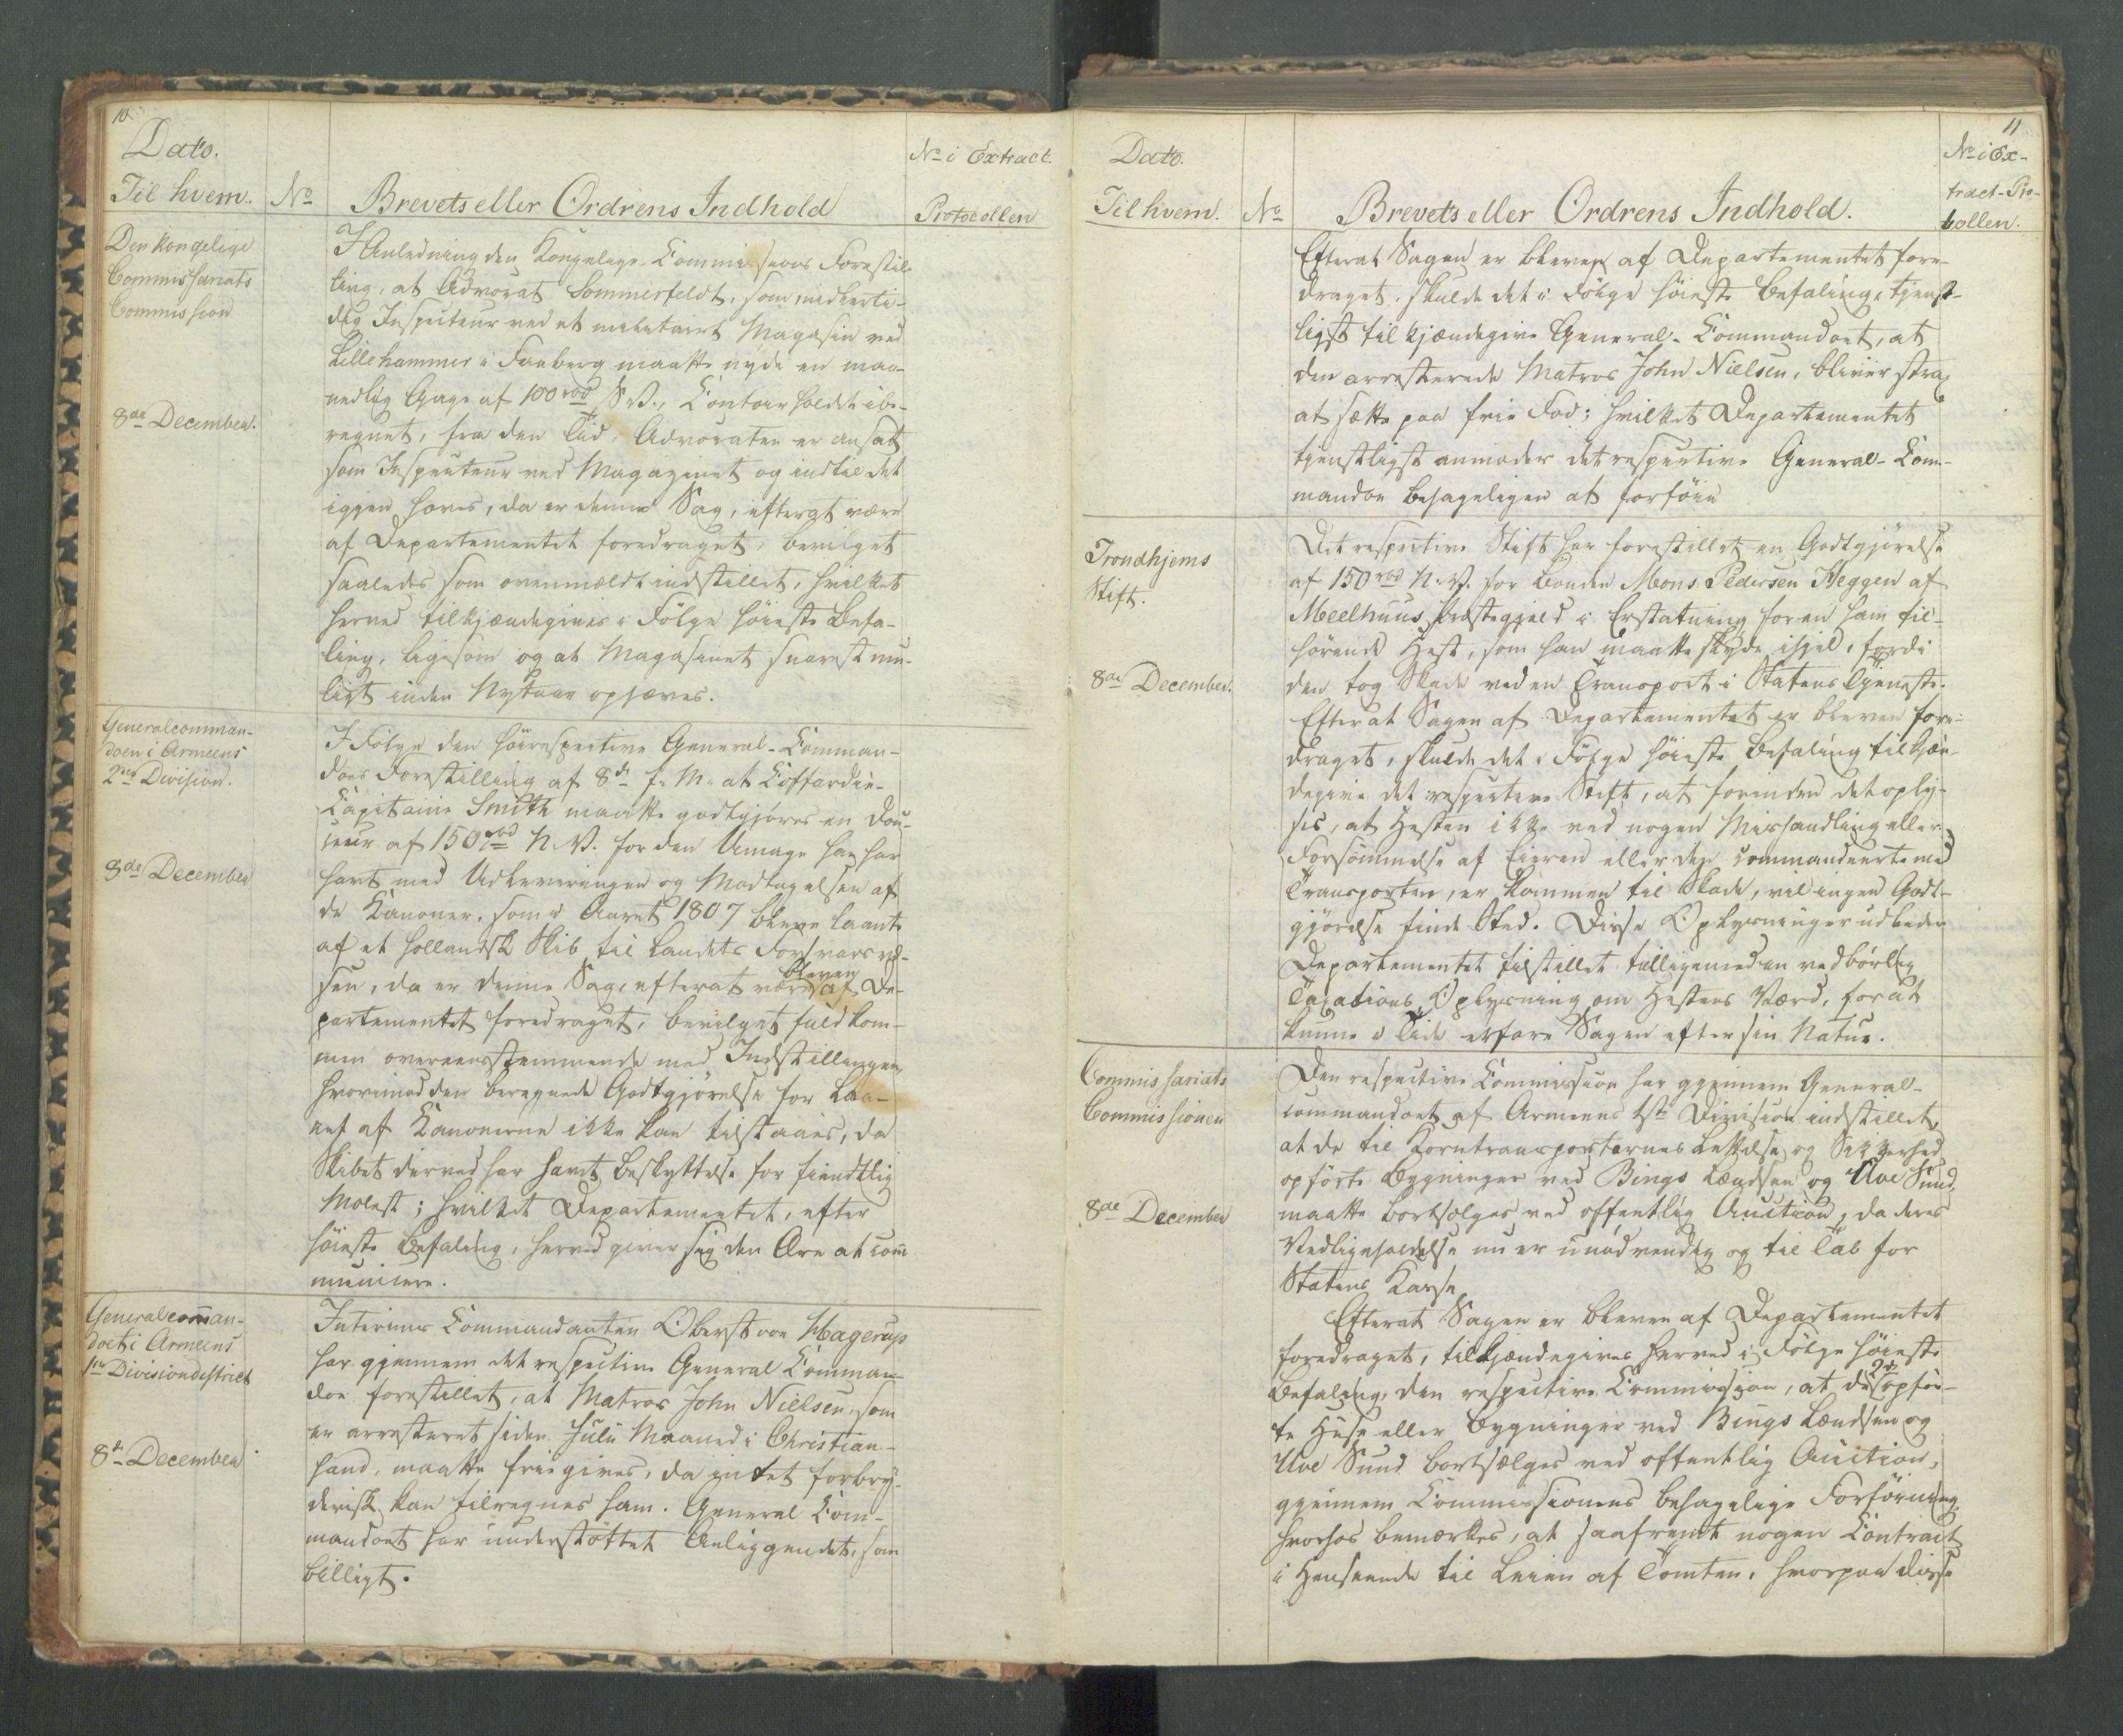 10
Dato.
Til hvem.
No
Brevets eller Ordrens Indhold
No i Extract
Protocollen
Den kongelige
Commissariats
Commission
8de December.
I Anledning den Kongelige Commissions Forestil-
ling, at Advocat Sommerfeldt, som midlerti-
dig Inspecteur ved et militairt Magasin ved
Lillehammer i Faaberg maatte nyde en maa-
nedlig Gage af 100 rbd S.V., Contoirholdet ibe-
regnet, fra den Tid, Advocaten er ansat
som Inspecteur ved Magazinet og indtil det
igjen hæves, da er denne Sag, efterat være
af Departementet foredraget, bevilget
saaledes som ovenmældt indstillet, hvilket
herved tilkjændegives i Følge høieste Befa-
ling, ligesom og at Magasinet snarest mu-
ligt inden Nytaar ophæves.
Generalcomman-
doen i Armeens
2den Division.
8de December
I Følge den høirespective General-Comman-
does Forestilling af 8de f. M. at Coffardie-
Capitaine Smith maatte godtgjøres en Dou-
ceur af 150 rbd N.V. for den Umage han har
havt med Udleveringen og Modtagelsen af
de Kanoner, som i Aaret 1807 bleve laante
af et hollandsk Skib til Landets Forsvarsvæ-
sen, da er denne Sag, efterat være bleven af De-
partementet foredraget, bevilget fuldkom-
men overeensstemmende med Indstillingen,
hvorimod den beregnede Godtgjørelse for Laa-
net af Kanonerne ikke kan tilstaaes, da
Skibet derved har havt Beskyttelse for fiendtlig
Molest; hvilket Departementet, efter
høieste Befaling, herved giver sig den Ære at com̄
municere.
Generalcom̄an-
doet i Armeens
1ste Divisiondistrict
8de December
Interims Commandanten Oberst von Hagerup
har gjennem det respective General Comman-
doe forestillet, at Matros John Nielsen, som
er arresteret siden Julii Maaned i Christian-
sand, maatte frie gives, da intet forbry-
derisk kan tilregnes ham. General Com-
mandoet har understøttet Anliggendet, som
billigt.
11
Dato.
Til hvem.
No
Brevets eller Ordrens Indhold.
No i Ex-
tract-Pro-
tocollen.
Efterat Sagen er bleven af Departementet fore-
draget, skulde det i Følge høieste Befaling, tjenst-
ligst tilkjændegive General-Commandoet, at
den arresterede Matros John Nielsen, bliver strax
at sætte paa frie Fod; hvilket Departementet
tjenstligst anmoder det respective General-Com-
mandoe behageligen at forføie
Trondhjems
Stift.
8de December.
Det respective Stift har forestillet en Godtgjørelse
af 150 rbd N.V. for Bonden Mons Pedersen Heggen af
Meelhuus Præstegjeld i Erstatning for en ham til-
hørende Hest, som han maatte skyde ihjel, fordi
den tog Skade ved en Transport i Statens Tjeneste.
Efterat Sagen af Departementet er bleven fore-
draget, skulde det i Følge høieste Befaling tilkjæn-
degive det respective Stift, at forinden det oply-
ses, at Hesten ikke ved nogen Mishandling eller
Forsømmelse af Eieren eller den commandeerte med
Transporten, er kommen til Skade, vil ingen Godt-
gjørelse finde Sted. Disse Oplysninger udbeder
Departementet tilstillet tilligemed en vedbørlig
Taxations Oplysning om Hestens Værd, for at
kunne i Tide erfare Sagen efter sin Natur.
Commissariats
Commissionen
8de December
Den respective Commission har gjennem General-
commandoet af Armeens 1ste Division indstillet,
at de til Korntransporternes Lettelse og Sikkerhed
opførte Bygninger ved Bings Lændsen og Uve Sund,
maatte bortsælges ved offentlig Auction, da deres
Vedligeholdelse nu er unødvendig og til Tab for
Statens Kasse
Efterat Sagen er bleven af Departementet
foredraget, tilkjændegives herved i Følge høieste
Befaling, den respective Commission, at de 2de opfør-
te Huse eller Bygninger ved Bings Lændsen og
Uve Sund bortsælges ved offentlig Auction,
gjennem Commissionens behagelige Forføining,
hvorhos bemærkes, at saafremt nogen Contract
i Henseende til Leien af Tomten, hvorpaa disse